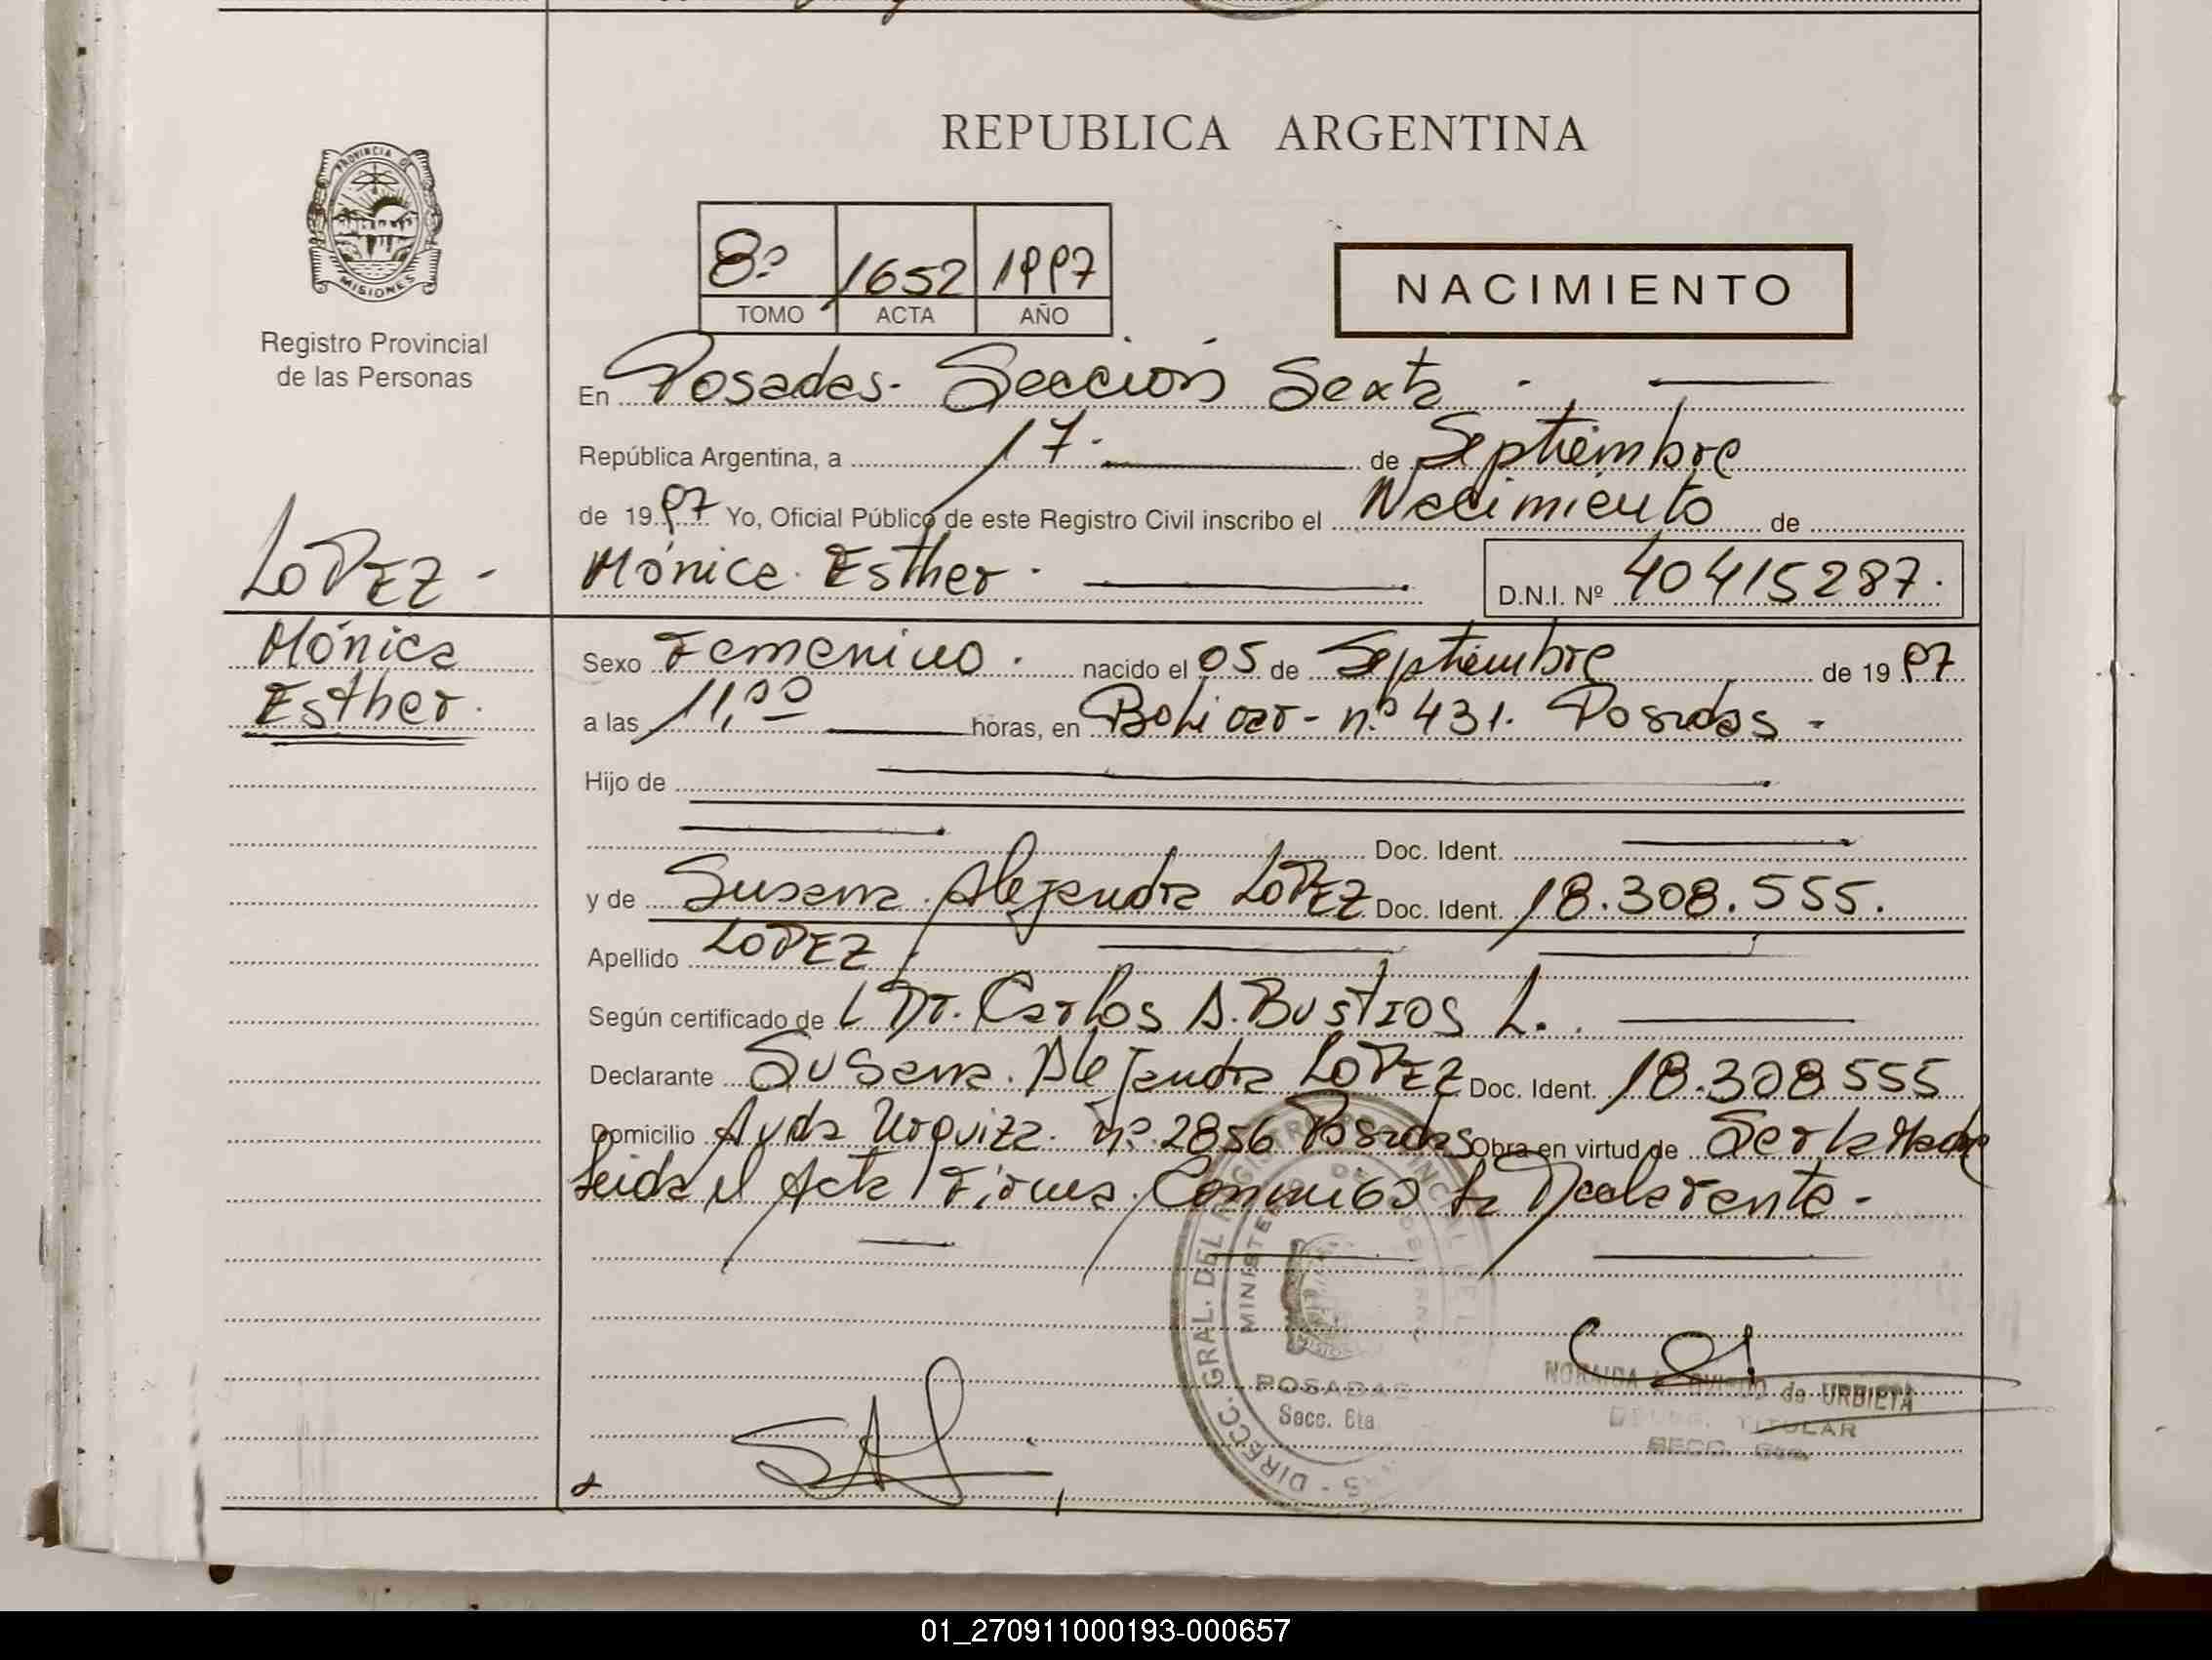 REPUBLICA ARGENTINA
PROVINCIA DE
MISIONES
Registro Provincial
de las Personas
8º 1652 1997
TOMO ACTA AÑO
NACIMIENTO
En Posadas- Sección Sexta -
República Argentina, a 17- de Septiembre
de 1997 Yo, Oficial Público de este Registro Civil inscribo el Nacimiento de
LOPEZ -
Mónica Esther
Mónica. Esther - D.N.I. Nº 40415287.
Sexo Femenino. nacido el 05 de Septiembre de 1997
a las 11,00 horas, en Bolivar- nº 431. Posadas -
Hijo de
Doc. Ident.
y de Susana Alejandra LOPEZ Doc. Ident. 18.308.555.
Apellido LOPEZ
Según certificado de Dr. Carlos A. BUSTIOS L.
Declarante Susana. Alejandra LOPEZ Doc. Ident. 18.308555
Domicilio Avda Urquiza. nº 2856 Posadas Obra en virtud de Ser la Madre
Leida el Acta Firma Conmigo la Declarante -
DIRECC. GRAL. DEL REGISTRO PROVINCIAL DE LAS
POSADAS
Secc. 6ta.
de URBIETA
TITULAR
SECC. 6ta.
SAL
01_270911000193-000657